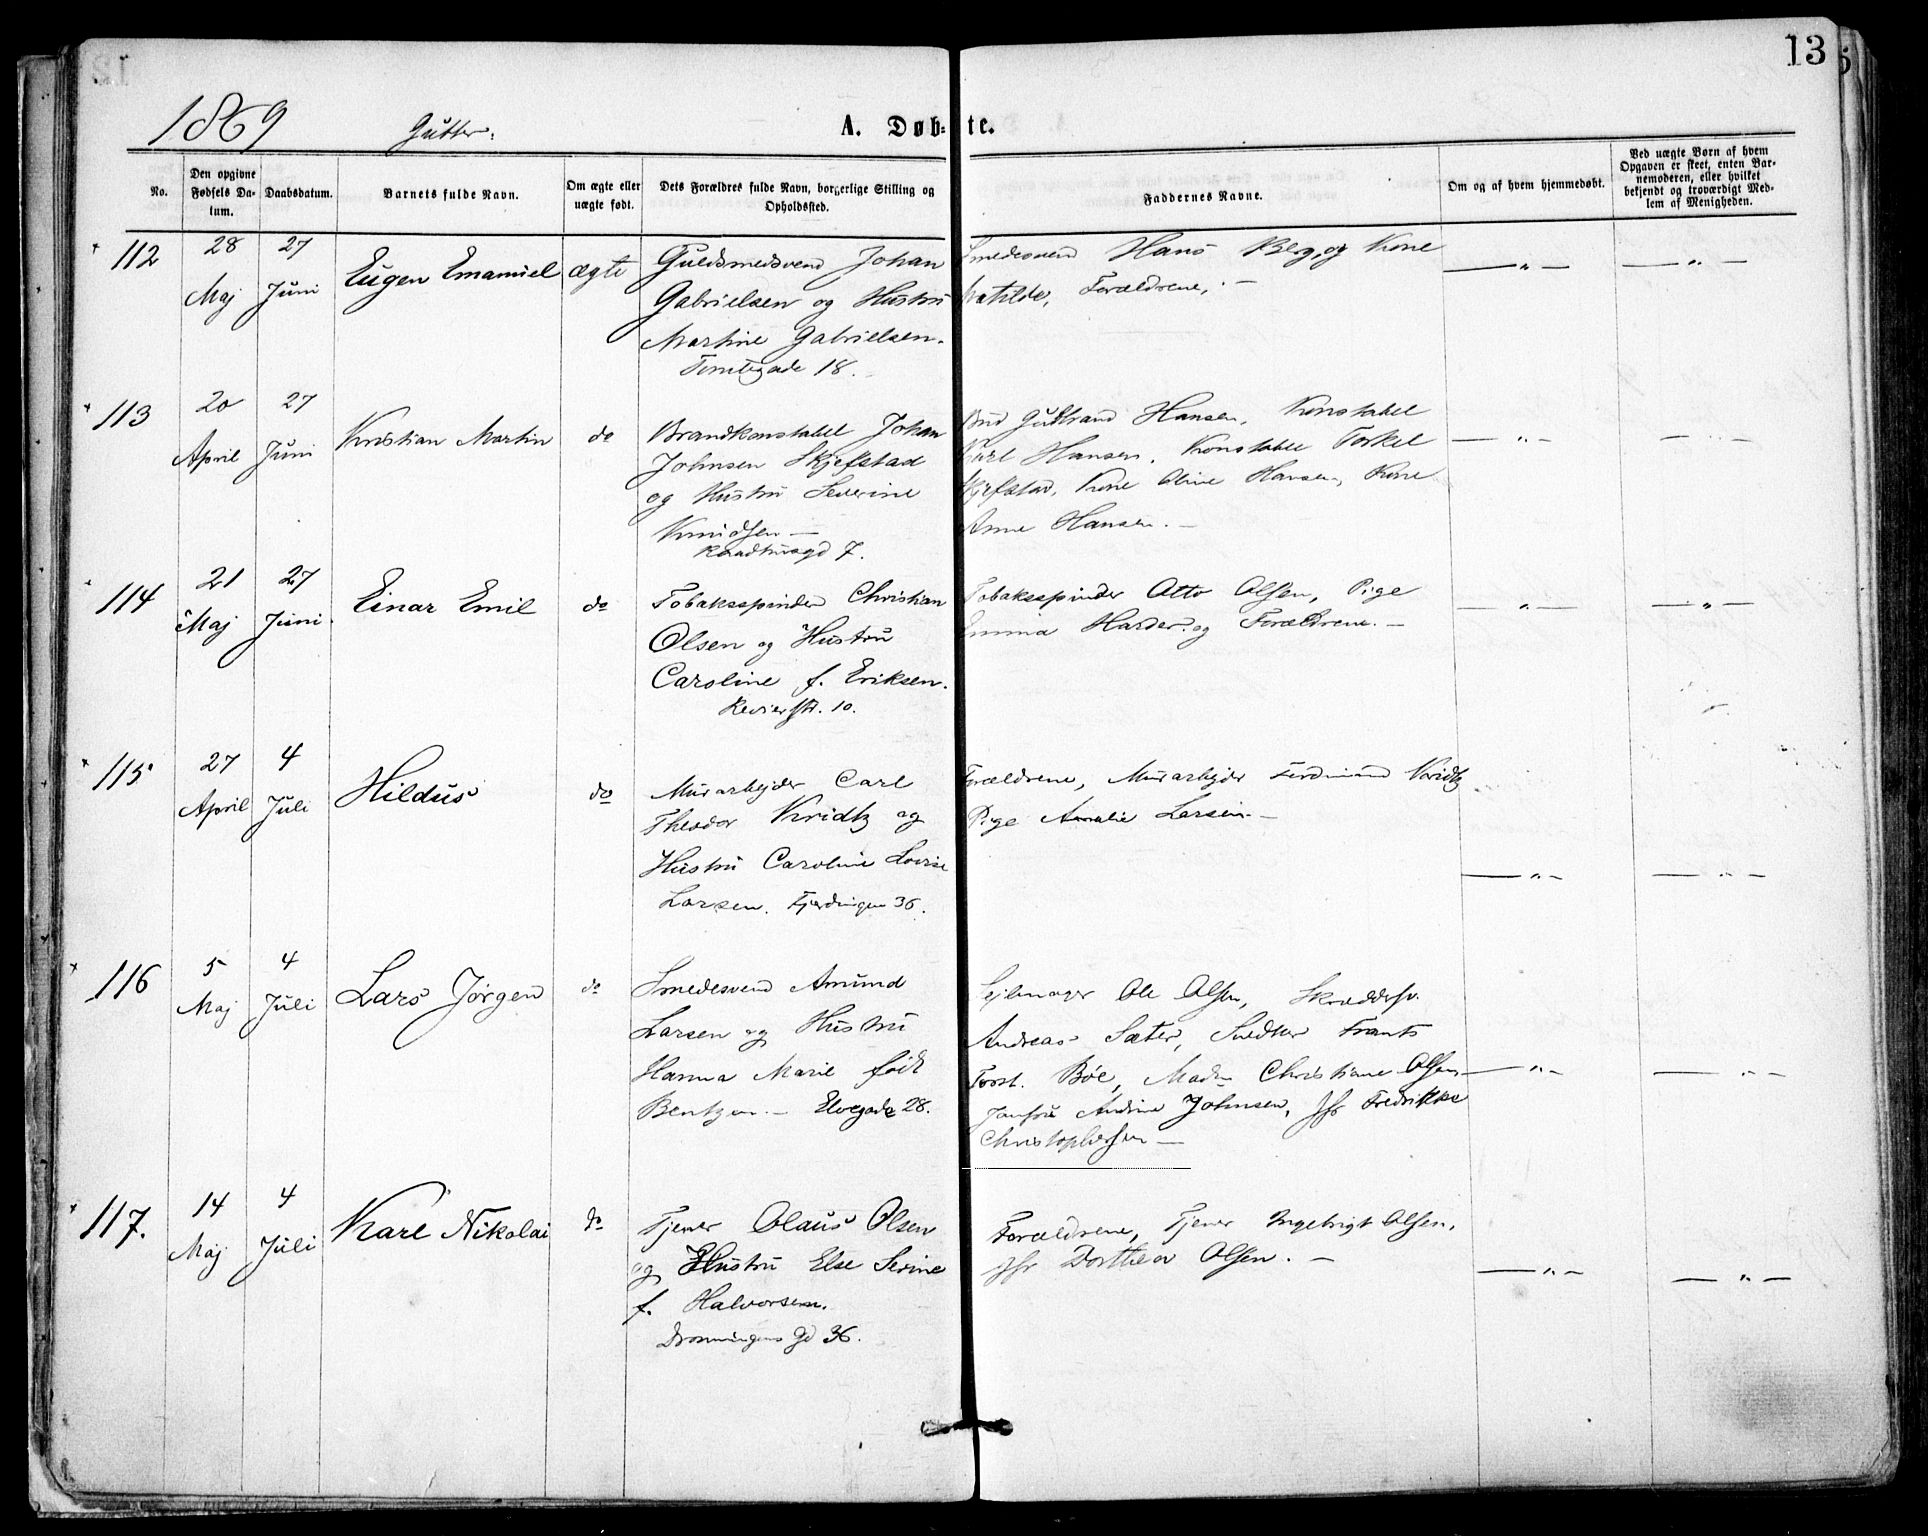 13
1869 Gutter: A. Døb- te.
No.
Den opgivne Fødsels Da-
tum.
Daabsdatum.
Barnets fulde Navn.
Om ægte eller
uægte født.
Dets Forældres fulde Navn, borgerlige Stilling og
Opholdssted.
Faddernes Navne.
Om og af hvem hjemmedøbt.
Ved uægte Børn af hvem
Opgaven er skeet, enten Bar-
nemoderen, eller hvilket
bekjendt og troværdigt Med-
lem af Menigheden.
112
28
Maj
27
Juni
Eugen Emanuel
ægte
Guldsmedsvend Johan
Gabrielsen og Hustru
Martine Gabrielsen.
Tomtegade 18.
Smedesvend Hans Berg, og Kone
Matilde, Forældrene, . —
— „ —
— „ —
113
20
April
27
Juni
Kristian Martin
do
Brandkonstabel Johan
Johnsen Skjefstad
og Hustru Severine
Knudsen —
Raadhusgd 7.
Bud Gudbrand Hansen, Konstabel
Karl Hansen, Konstabel Torkel
Skjefstad, Kone Oline Hansen, Kone
Anne Hansen. —
— „ —
— „ —
114
21
Maj
27
Juni
Einar Emil
do
Tobaksspinder Christian
Olsen og Hustru
Caroline f. Eriksen.
Revierstr. 10.
Tobaksspinder Otto Olsen, Pige
Emma Harder og Forældrene. —
— „ —
— „ —
115
27
April
4
Juli
Hildus
do
Murarbejder Carl
Theodor Kridtz og
Hustru Caroline Lovise
Larsen. Fjerdingen 36.
Forældrene, Murarbejder Ferdinand Kridtz
Pige Amalie Larsen. —
— „ —
— „ —
116
5
Maj
4
Juli
Lars Jörgen
do
Smedesvend Amund
Larsen og Hustru
Hanna Marie født
Bentzen. — Elvegade 28.
Sejlmager Ole Olsen, Skræddersv.
Andreas Sæter, Snedker Frants
Torst. Böe, Madm Christiane Olsen
Jomfru Andrine Johnsen, Jfr Fredrikke
Christophersen —
— „ —
— „ —
117.
14
Maj
4
Juli
Karl Nikolai
do
Tjener Olaus Olsen
og Hustru Else Serine
f. Halvorsen.
Dronningens Gd 36.
Forældrene, Tjener Ingebrigt Olsen,
Jfr Dorthea Olsen. —
— „ —
— „ —